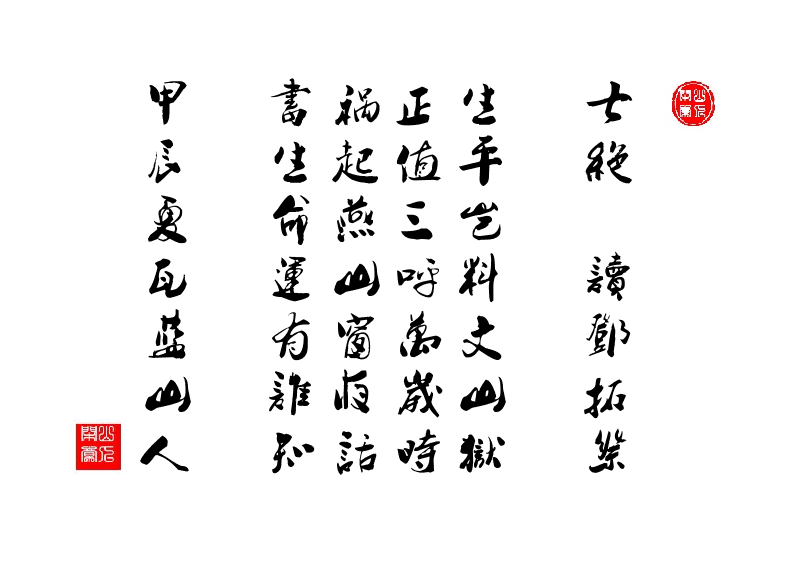 七絕 讀鄧拓
生平豈料文山獄
正值三呼萬歲時
禍起燕山窗夜話
書生命運有誰知
甲辰夏瓦藍山人